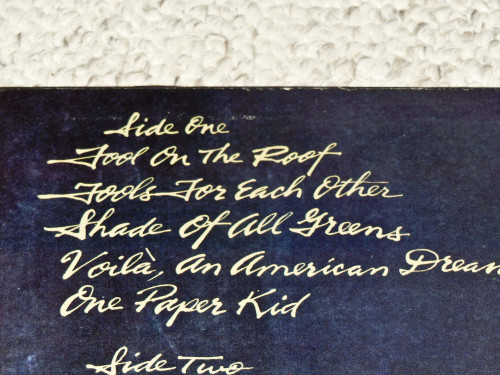 Side One
Fool On The Roof
Fools For Each Other
Shade Of All Greens
Voilà, An American Dream
One Paper Kid
Side Two